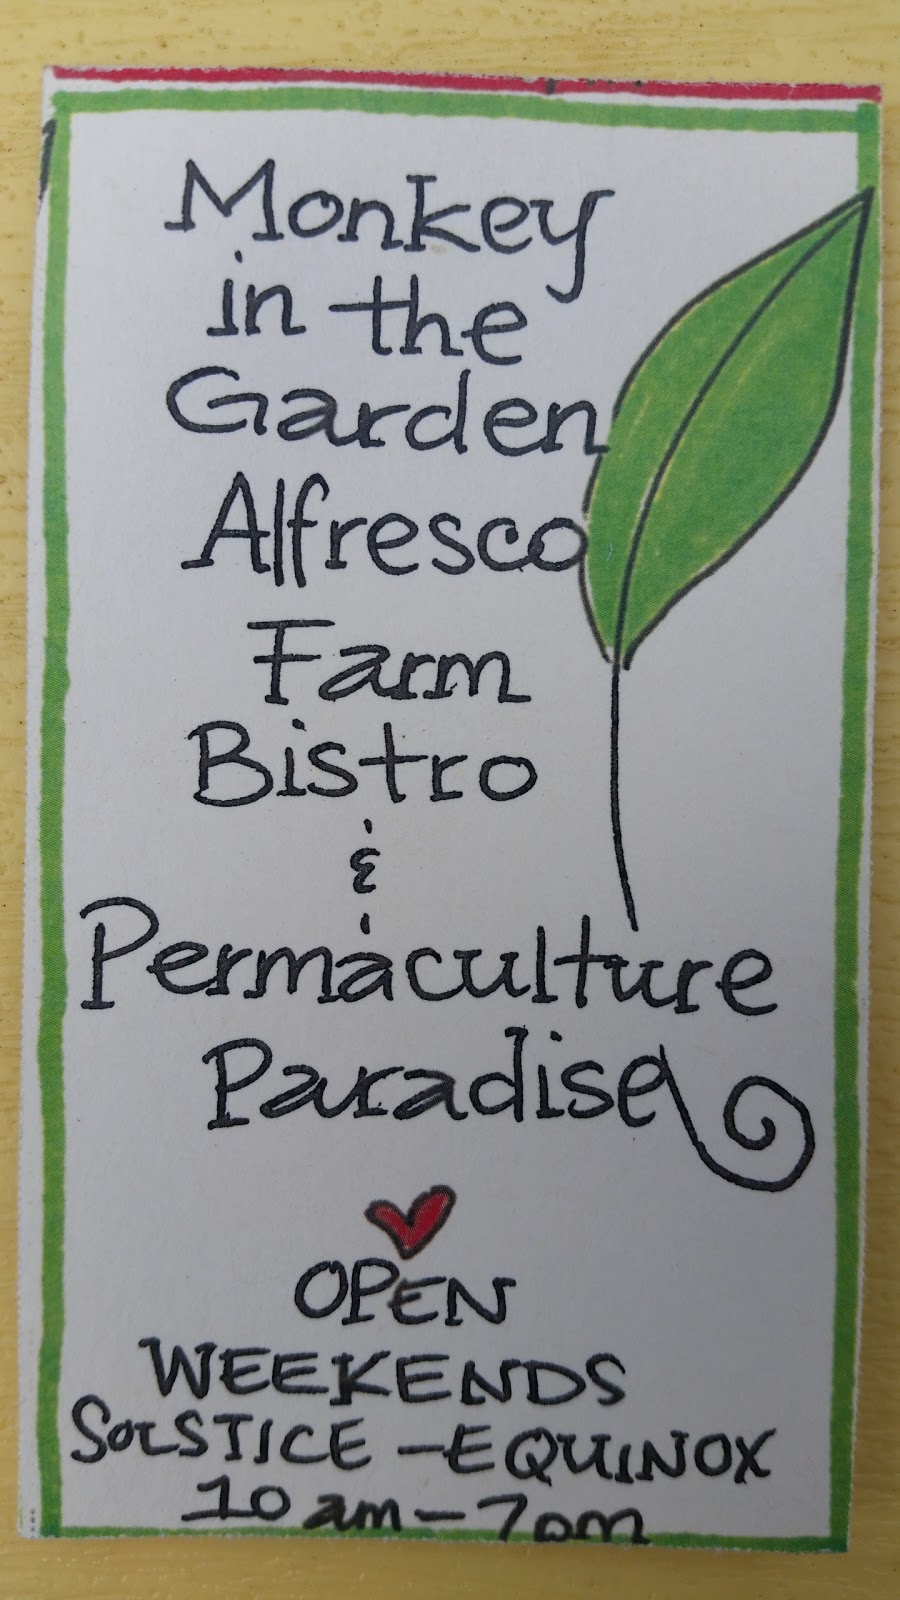 Monkey
in the
Garden
Alfresco
Farm
Bistro
&
Permaculture
Paradise
OPEN
WEEKENDS
SOLSTICE – EQUINOX
10 am – 7 pm